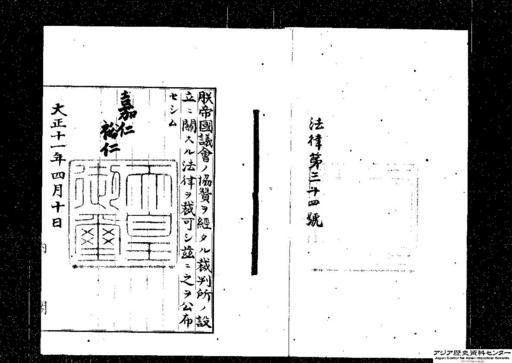 法律第三十四號
朕帝國議會ノ協贊ヲ經タル裁判所ノ設
立ニ關スル法律ヲ裁可シ茲ニ之ヲ公布
セシム
嘉仁
裕仁
天皇
御璽
大正十一年四月十日
内閣
アジア歴史資料センター
Japan Center for Asian Historical Records